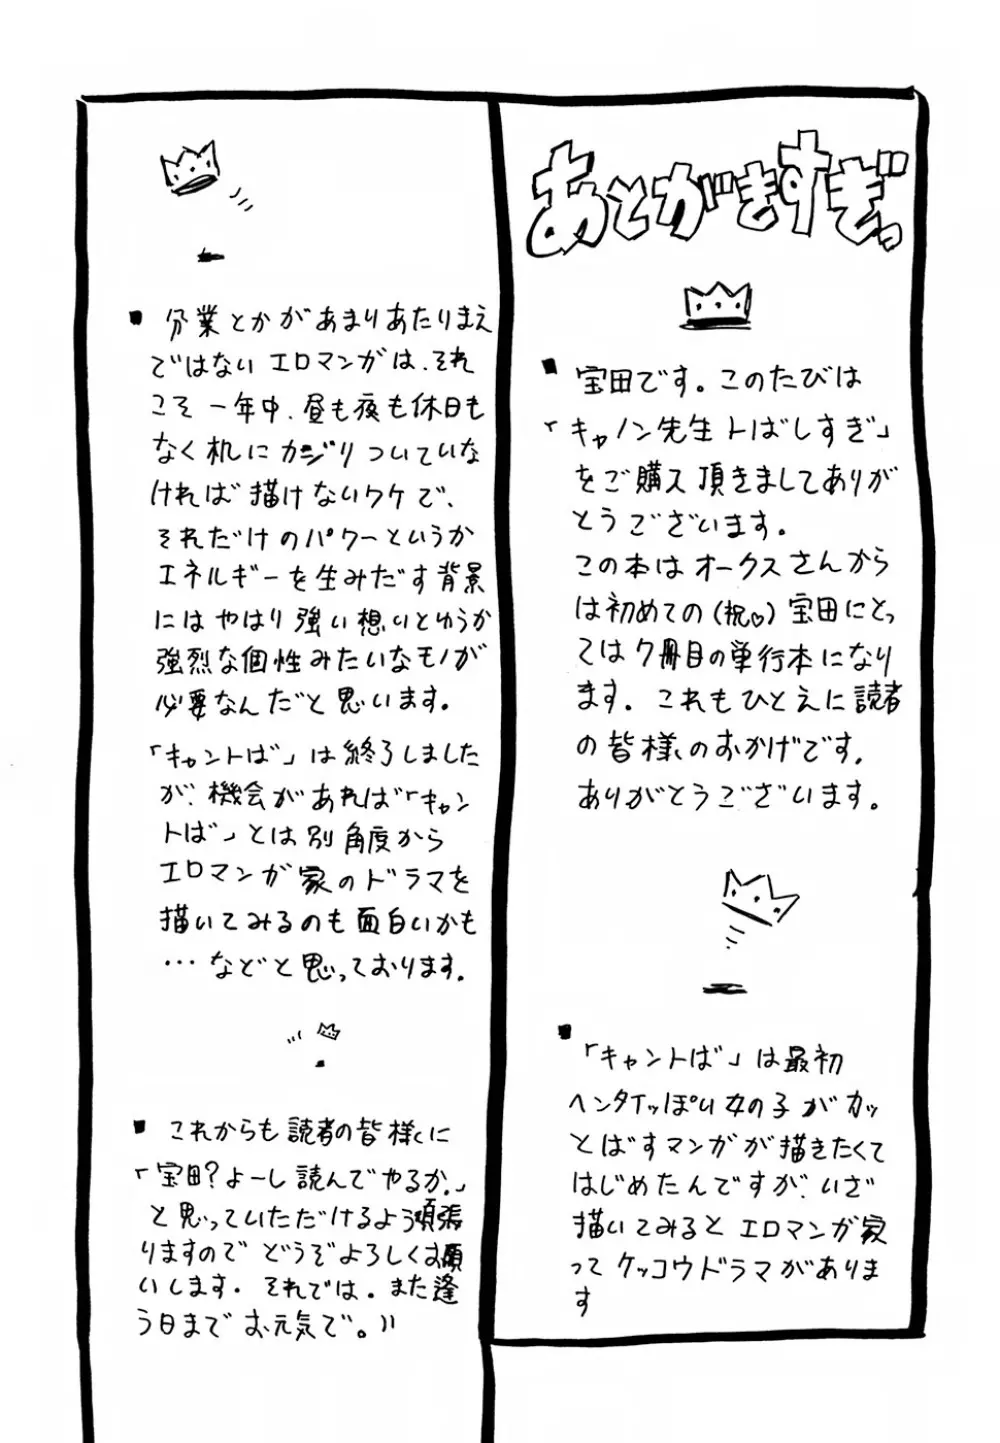 あとがきすぎっ
■ 宝田です。このたびは
「キャノン先生トばしすぎ」
をご購入頂きましてありが
とうございます。
この本はオークスさんから
は初めての(祝♡)宝田にとっ
ては7冊目の単行本になり
ます。これもひとえに読者
の皆様のおかげです。
ありがとうございます。
■
「キャントば」は最初
ヘンタイッぽい女の子がカッ
とばすマンガが描きたくて
はじめたんですが、いざ
描いてみるとエロマンガ家
ってケッコウドラマがありま
す
■ 分業とかがあまりあたりまえ
ではないエロマンガは、それ
こそ一年中、昼も夜も休日も
なく机にカジりついていな
ければ描けないワケで、
それだけのパワーというか
エネルギーを生みだす背景
にはやはり強い想いとゆうか
強烈な個性みたいなモノが
必要なんだと思います。
「キャントば」は終了しました
が、機会があれば「キャン
トば」とは別角度から
エロマンガ家のドラマを
描いてみるのも面白いかも
…などと思っております。
■ これからも読者の皆様に
「宝田?よーし読んでやるか。」
と思っていただけるよう頑張
りますのでどうぞよろしくお願
いします。それでは。また逢
う日までお元気で。))